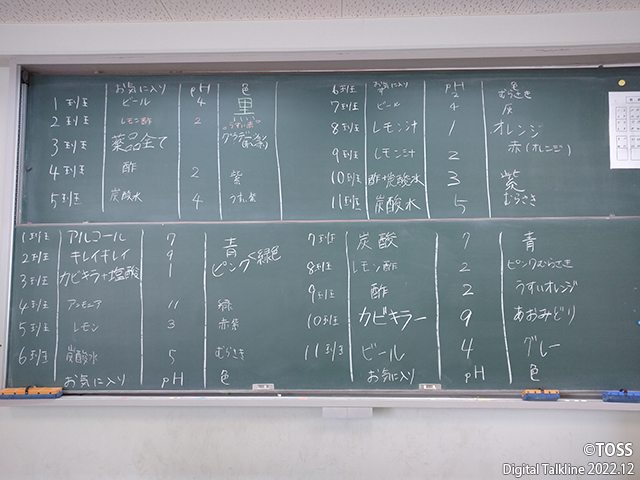 お気に入り pH 色
1班 ビール 4 黒
2班 レモン酢 2 うすい赤
3班 薬品全て
4班 酢 2 紫
5班 炭酸水 4 うすい紫
6班 お気に入り 酢 pH 2 色 むらさき
7班 ビール 4 灰
8班 レモン汁 1 オレンジ
9班 レモン汁 2 赤(オレンジ)
10班 酢+炭酸水 3 紫
11班 炭酸水 5 むらさき
1班 アルコール 7 青
2班 キレイキレイ 9 ピンク<緑色
3班 カビキラ+塩酸 1
4班 アンモニア 11 緑
5班 レモン 3 赤紫
6班 炭酸水 5 むらさき
お気に入り pH 色
7班 炭酸 7 青
8班 レモン酢 2 ピンクむらさき
9班 酢 2 うすいオレンジ
10班 カビキラー 9 あおみどり
11班 ビール 4 グレー
お気に入り pH 色
©TOSS
Digital Talkline 2022.12